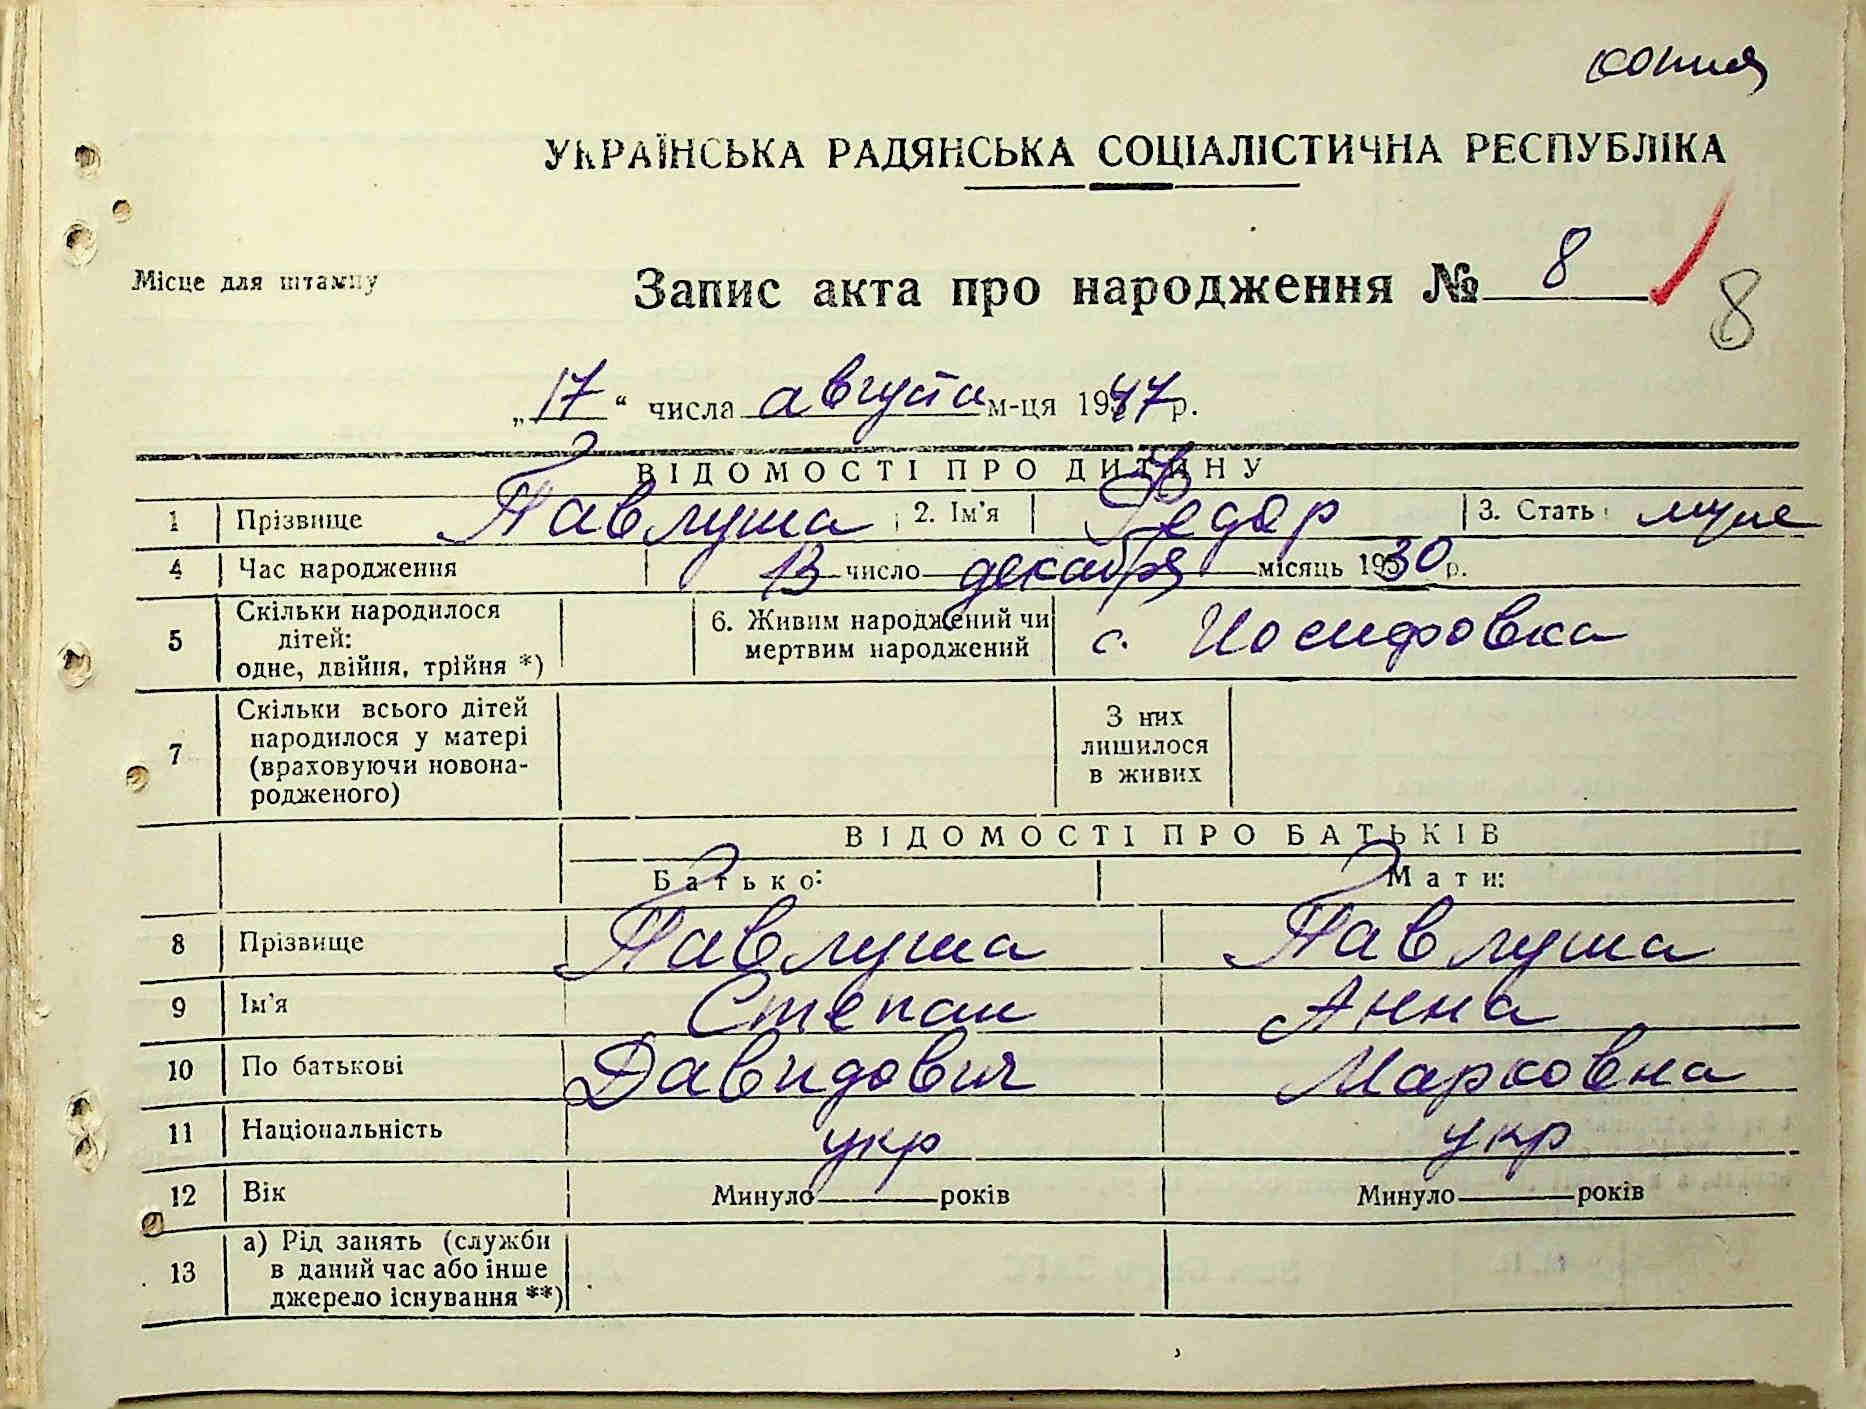 копия
УКРАЇНСЬКА РАДЯНСЬКА СОЦІАЛІСТИЧНА РЕСПУБЛІКА
Місце для штампу
Запис акта про народження № 8
8
„17“ числа августа м-ця 1947 р.
ВІДОМОСТІ ПРО ДИТИНУ
1 Прізвище Павлуша 2. Ім'я Федор 3. Стать муж
4 Час народження 13 число декабря місяць 1930 р.
5 Скільки народилося дітей: одне, двійня, трійня *) 6. Живим народжений чи мертвим народжений с. Иосифовка
7 Скільки всього дітей народилося у матері (враховуючи новонародженого) З них лишилося в живих
ВІДОМОСТІ ПРО БАТЬКІВ
Батько: Мати:
8 Прізвище Павлуша Павлуша
9 Ім'я Степан Анна
10 По батькові Давидович Марковна
11 Національність укр укр
12 Вік Минуло років Минуло років
13 а) Рід занять (служби в даний час або інше джерело існування **)